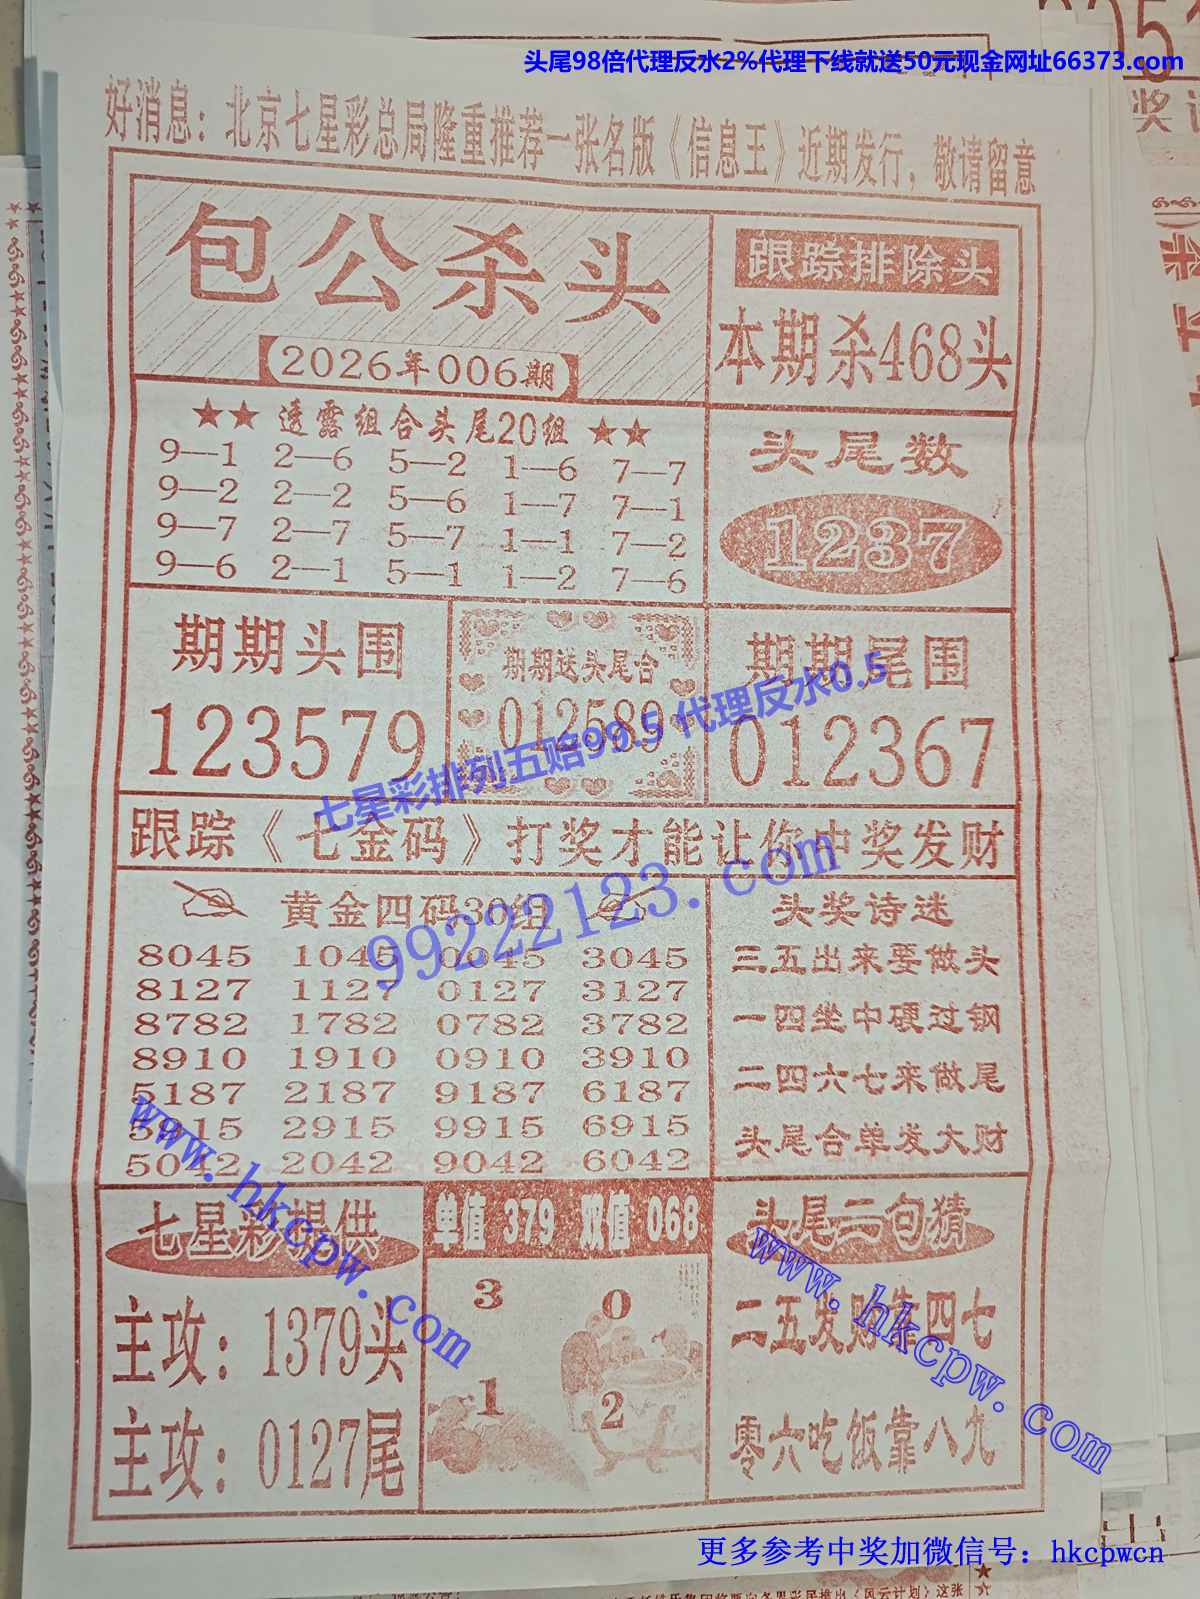 头尾98倍代理反水2%代理下线就送50元现金网址66373.com
好消息：北京七星彩总局隆重推荐一张名版《信息王》近期发行，敬请留意
包公杀头
2026年006期
跟踪排除头
本期杀468头
★★ 透露组合头尾20组 ★★
9—1 2—6 5—2 1—6 7—7
9—2 2—2 5—6 1—7 7—1
9—7 2—7 5—7 1—1 7—2
9—6 2—1 5—1 1—2 7—6
头尾数
1237
期期头围
123579
期期送头尾合
012589
期期尾围
012367
七星彩排列五赔99.5 代理反水0.5
跟踪《七金码》打奖才能让你中奖发财
99222123.com
黄金四码30组
8045 1045 0045 3045
8127 1127 0127 3127
8782 1782 0782 3782
8910 1910 0910 3910
5187 2187 9187 6187
5915 2915 9915 6915
5042 2042 9042 6042
头奖诗迷
三五出来要做头
一四坐中硬过钢
二四六七来做尾
头尾合单发大财
七星彩提供
主攻：1379头
主攻：0127尾
www.hkcpw.com
单值 379 双值 068
3
0
1
2
头尾二句猜
二五发财靠四七
零六吃饭靠八九
www.hkcpw.com
更多参考中奖加微信号：hkcpwcn